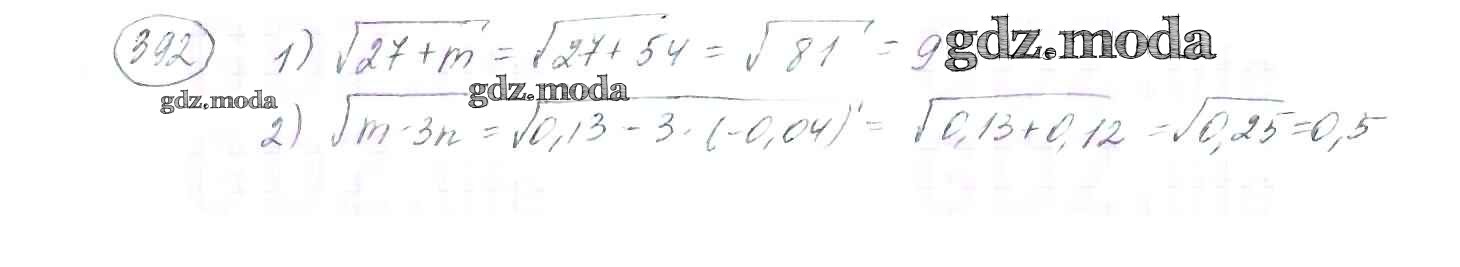 392 1) √27+m = √27+54 = √81 = 9 gdz.moda
gdz.moda gdz.moda
2) √m-3n = √0,13-3·(-0,04) = √0,13+0,12 = √0,25 = 0,5